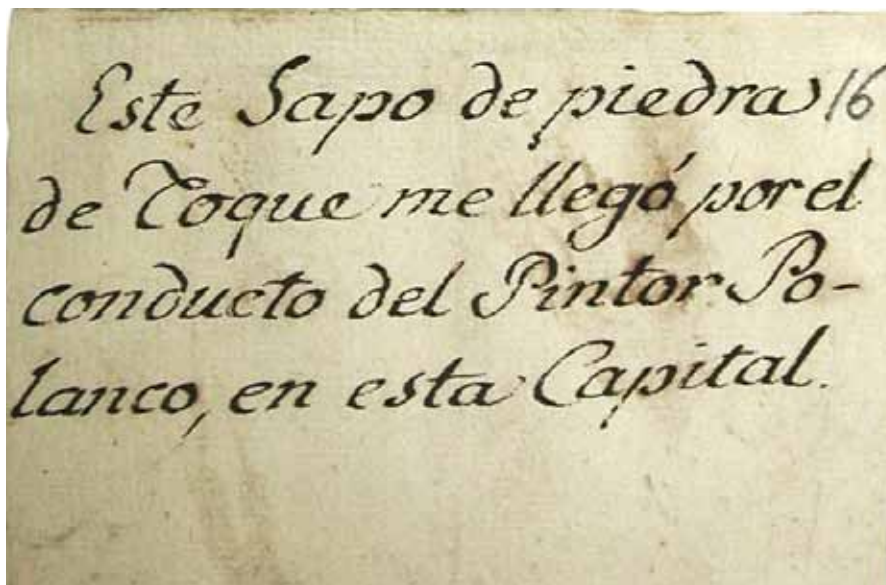 Este Sapo de piedra 16
de Toque me llegó por el
conducto del Pintor Po-
lanco, en esta Capital.